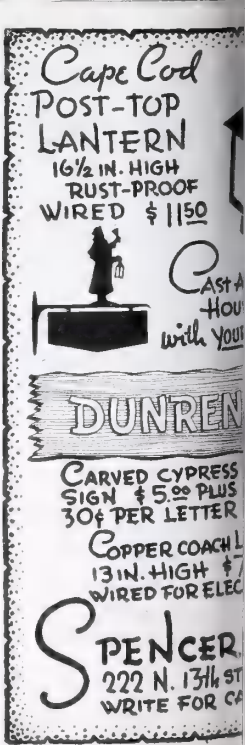 Cape Cod
POST-TOP
LANTERN
16½ IN. HIGH
RUST-PROOF
WIRED $11.50
CAST
with
CARVED CYPRESS
SIGN $5.00 PLUS
30¢ PER LETTER
COPPER COACH
13 IN. HIGH
WIRED FOR
SPENCER,
222 N. 13th ST
WRITE FOR